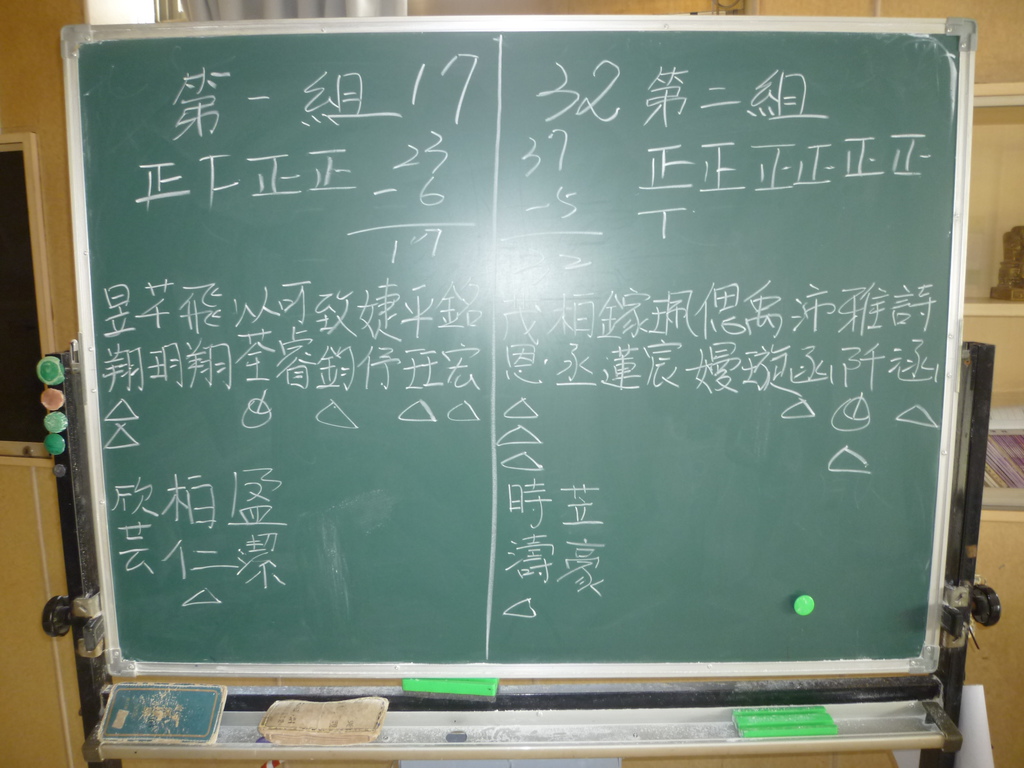 第一組 17
正下正正 23
-6
17
昱芊飛以可致婕平銘
翔玥翔荃睿鈞伃亞宏
欣柏盈
芸仁潔
32 第二組
37 正正正正正正
-5 丅
柏鎵珮偲禹沛雅詩
恩丞蓮宸嫚璇函阡涵
時苙
濤豪